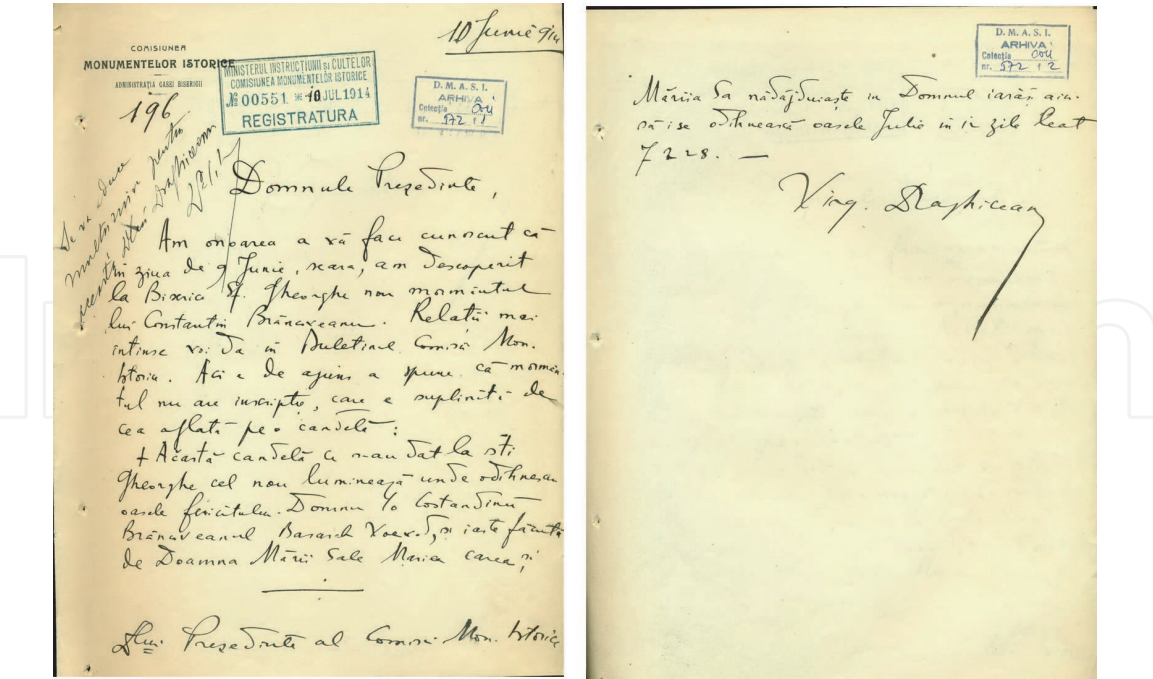 COMISIUNEA
MONUMENTELOR ISTORICE
ADMINISTRAȚIA CASEI BISERICII
196
MINISTERUL INSTRUCȚIUNII ȘI CULTELOR
COMISIUNEA MONUMENTELOR ISTORICE
№ 00551 * 10 JUL 1914
REGISTRATURA
10 Junie 914
D. M. A. S. I.
ARHIVA
Colecția
nr. 572 1
Se va aduce
mulțumiri pentru
Drăghiceanu
Domnule Președinte,
Am onoarea a vă face cunoscut că
în ziua de 9 Junie, seara, am descoperit
la Biserica Sf. Gheorghe nou mormântul
lui Constantin Brâncoveanu. Relații mai
intinse voi da în Buletinul Comisii Mon.
Istorice. Aci e de ajuns a spune că mormân-
tul nu are inscripție, care e suplinită de
cea aflată pe o candelă:
+ Această candelă ce s-au dat la sti
Gheorghe cel nou luminează unde odihnescu
oasele fericitului Domnu Io Costandinu
Brâncoveanul Basarab Voevod, și iaste făcută
de Doamna Mării Sale Mariia carea și
Dlui Președinte al Comisii Mon. Istorice
D. M. A. S. I.
ARHIVA
Colecția
nr. 572 2
Măriia Sa nădăjduiaște in Domnul iarăș aicu-
să i se odihnească oasele Julie in 12 zile leat
7228. —
Virg. Drăghiceanu